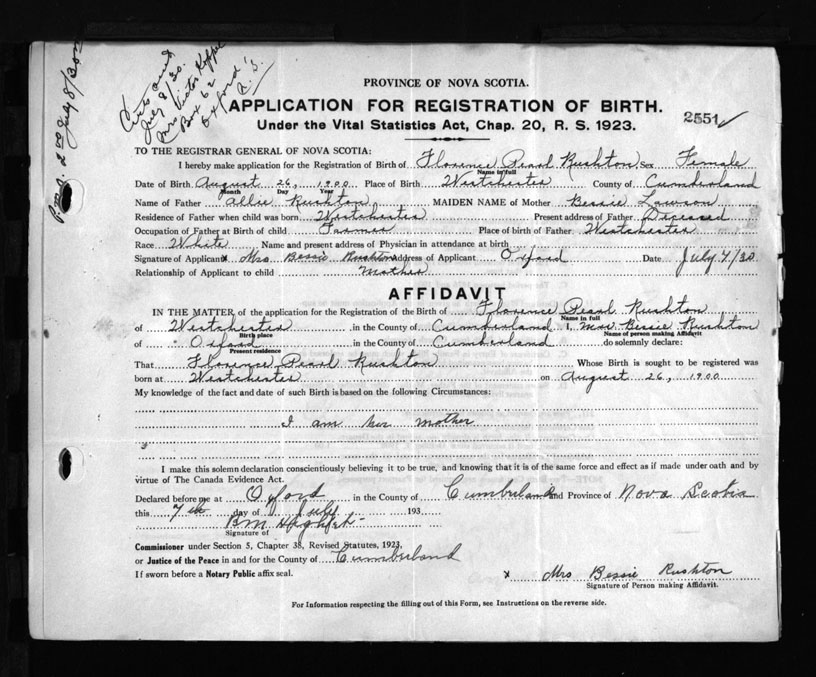 July 8/30.
Mrs Victor
Box 62
Oxford,
N.S.
July 8/30
PROVINCE OF NOVA SCOTIA.
APPLICATION FOR REGISTRATION OF BIRTH.
2551
Under the Vital Statistics Act, Chap. 20, R. S. 1923.
TO THE REGISTRAR GENERAL OF NOVA SCOTIA:
I hereby make application for the Registration of Birth of Florence Pearl Rushton Sex Female
Name in full
Date of Birth August 26, 1900 Place of Birth Westchester County of Cumberland
Month Day Year
Name of Father Allie Rushton MAIDEN NAME of Mother Bessie Lawson
Residence of Father when child was born Westchester Present address of Father Deceased
Occupation of Father at Birth of child Farmer Place of birth of Father Westchester
Race White Name and present address of Physician in attendance at birth
Signature of Applicant x Mrs. Bessie Rushton Address of Applicant Oxford Date July 7/30
Relationship of Applicant to child Mother
AFFIDAVIT
IN THE MATTER of the application for the Registration of the Birth of Florence Pearl Rushton
Name in full
of Westchester in the County of Cumberland I, Mrs Bessie Rushton
Birth place Name of person making Affidavit
of Oxford in the County of Cumberland do solemnly declare:
Present residence
That Florence Pearl Rushton Whose Birth is sought to be registered was
born at Westchester on August 26, 1900
My knowledge of the fact and date of such Birth is based on the following Circumstances:
I am her mother
I make this solemn declaration conscientiously believing it to be true, and knowing that it is of the same force and effect as if made under oath and by
virtue of The Canada Evidence Act.
Declared before me at Oxford in the County of Cumberland and Province of Nova Scotia
this 7th day of July 193
Signature of
Commissioner under Section 5, Chapter 38, Revised Statutes, 1923,
or Justice of the Peace in and for the County of Cumberland
If sworn before a Notary Public affix seal.
x Mrs Bessie Rushton
Signature of Person making Affidavit.
For Information respecting the filling out of this Form, see Instructions on the reverse side.